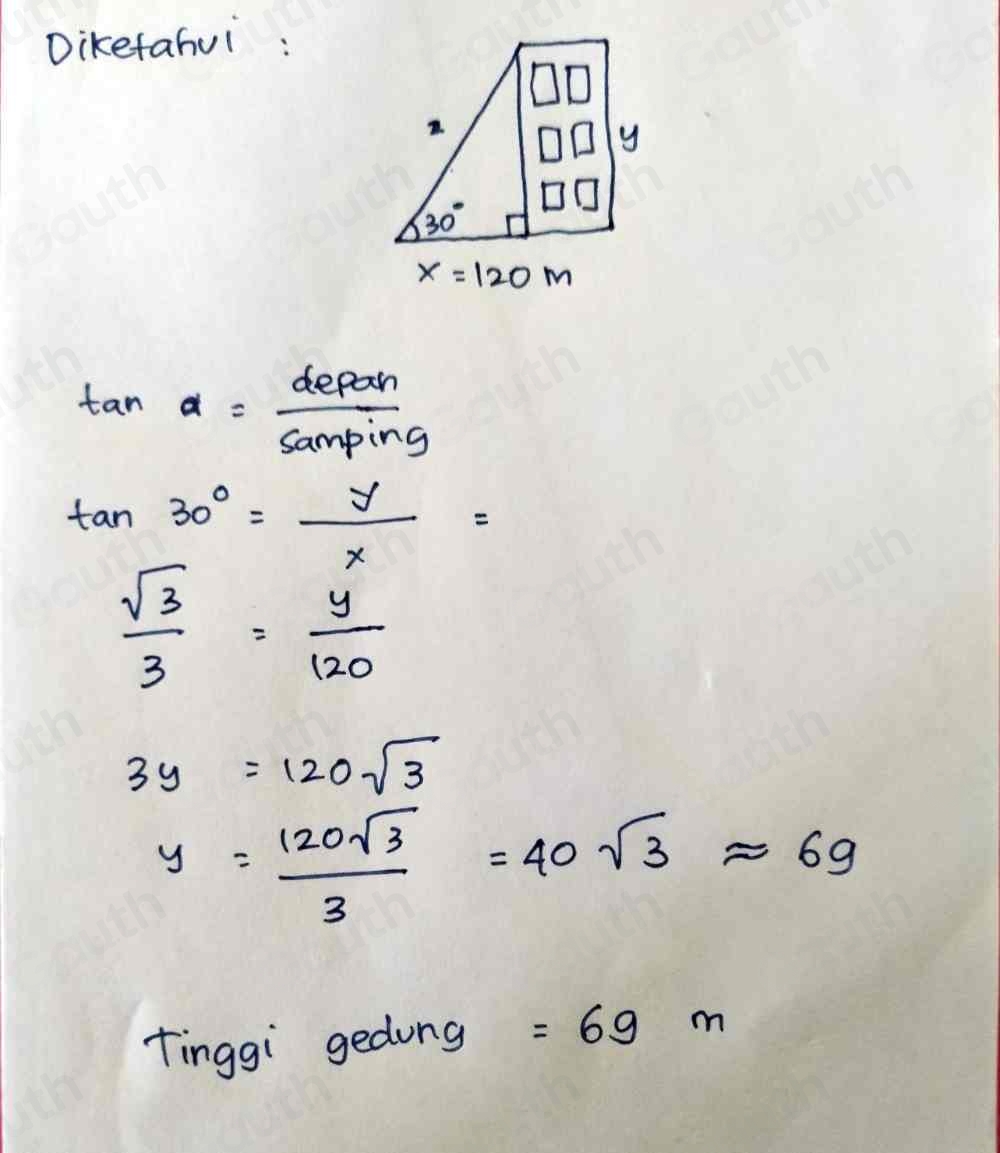 Diketahui :
z
y
30°
x = 120 m
tan α = depan / samping
tan 30° = y / x =
√3 / 3 = y / 120
3y = 120√3
y = 120√3 / 3 = 40√3 ≈ 69
Tinggi gedung = 69 m
Gauth